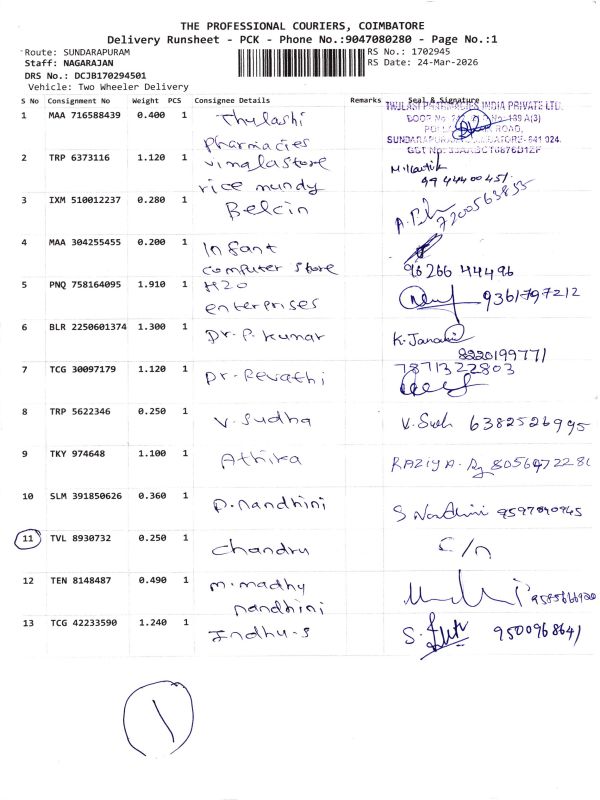 THE PROFESSIONAL COURIERS, COIMBATORE
Delivery Runsheet - PCK - Phone No.:9047080280 - Page No.:1
Route: SUNDARAPURAM RS No.: 1702945
Staff: NAGARAJAN RS Date: 24-Mar-2026
DRS No.: DCJB170294501
Vehicle: Two Wheeler Delivery
S No Consignment No Weight PCS Consignee Details Remarks Seal & Signature
1 MAA 716588439 0.400 1 Thulashi
pharmacies
THULASI PHARMACIES INDIA PRIVATE LTD.
DOOR No
ROAD,
2 TRP 6373116 1.120 1 vimala store
rice mundy
3 IXM 510012237 0.280 1 Belcin 7200563855
4 MAA 304255455 0.200 1 Infant
computer store 96266 44496
5 PNQ 758164095 1.910 1 H2O
enterprises 9361797212
6 BLR 2250601374 1.300 1 Dr. P. kumar K. Janaki
8220199771
7 TCG 30097179 1.120 1 Dr. Revathi 7871322803
8 TRP 5622346 0.250 1 V. Sudha V. Sudh 6382526995
9 TKY 974648 1.100 1 Athira RAZIYA.
10 SLM 391850626 0.360 1 P. nandhini S Nandhini
11 TVL 8930732 0.250 1 Chandru C/n
12 TEN 8148487 0.490 1 m. madhy
nandhini
13 TCG 42233590 1.240 1 Indhu-S S. 9500968641
1